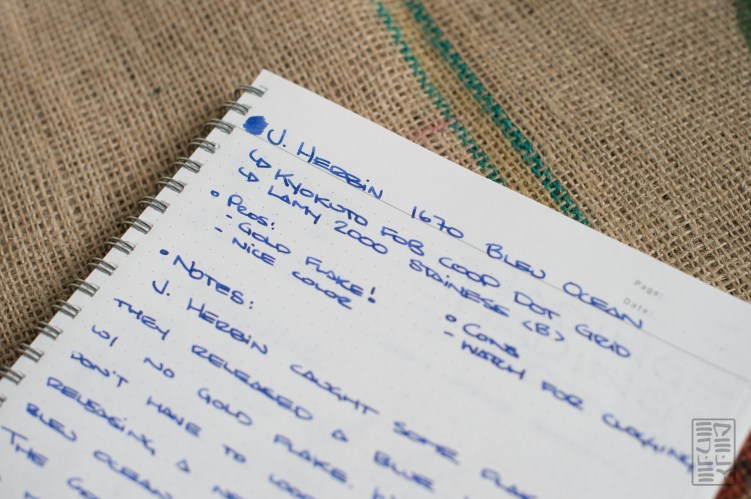 J. HERBIN 1670 BLEU OCEAN
↳ KYOKUTO FOB COOP DOT GRID
↳ LAMY 2000 STAINLESS (B)
Page:
Date:
• PROS:
- GOLD FLAKE!
- NICE COLOR
• CONS
- WATCH FOR CLOGGING
• NOTES:
J. HERBIN CAUGHT SOME FLAK
THEY RELEASED A BLUE
W/ NO GOLD FLAKE.
DON'T HAVE TO LOOK
RELEASING A
BLEU OCEAN
THE